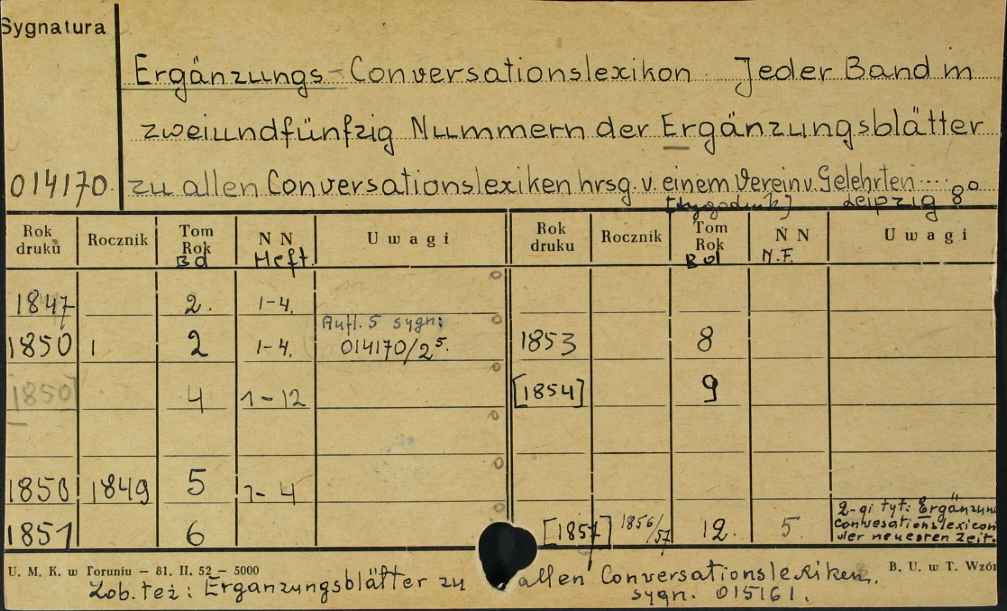 Sygnatura
Ergänzungs-Conversationslexikon. Jeder Band in
zweiundfünfzig Nummern der Ergänzungsblätter
014170. zu allen Conversationslexiken hrsg. v. einem Verein v. Gelehrten ....
Leipzig 8°
Rok druku Rocznik Tom Rok Bd N N Heft. Uwagi Rok druku Rocznik Tom Rok Bd N N N.F. Uwagi
1847 2. 1-4.
Aufl. 5 sygn:
1850 1 2 1-4. 014170/2⁵. 1853 8
[1850] 4 1-12 [1854] 9
1850 1849 5 1-4
1851 6 [1857] 1856/57 12. 5. 2-gi tyt: Ergänzun
conversationslexicon
der neuesten Zeit.
U. M. K. w Toruniu — 81. II. 52 — 5000 B. U. w T. Wzór
Zob. też: Ergänzungsblätter zu allen Conversationslexiken.
sygn. 015161.